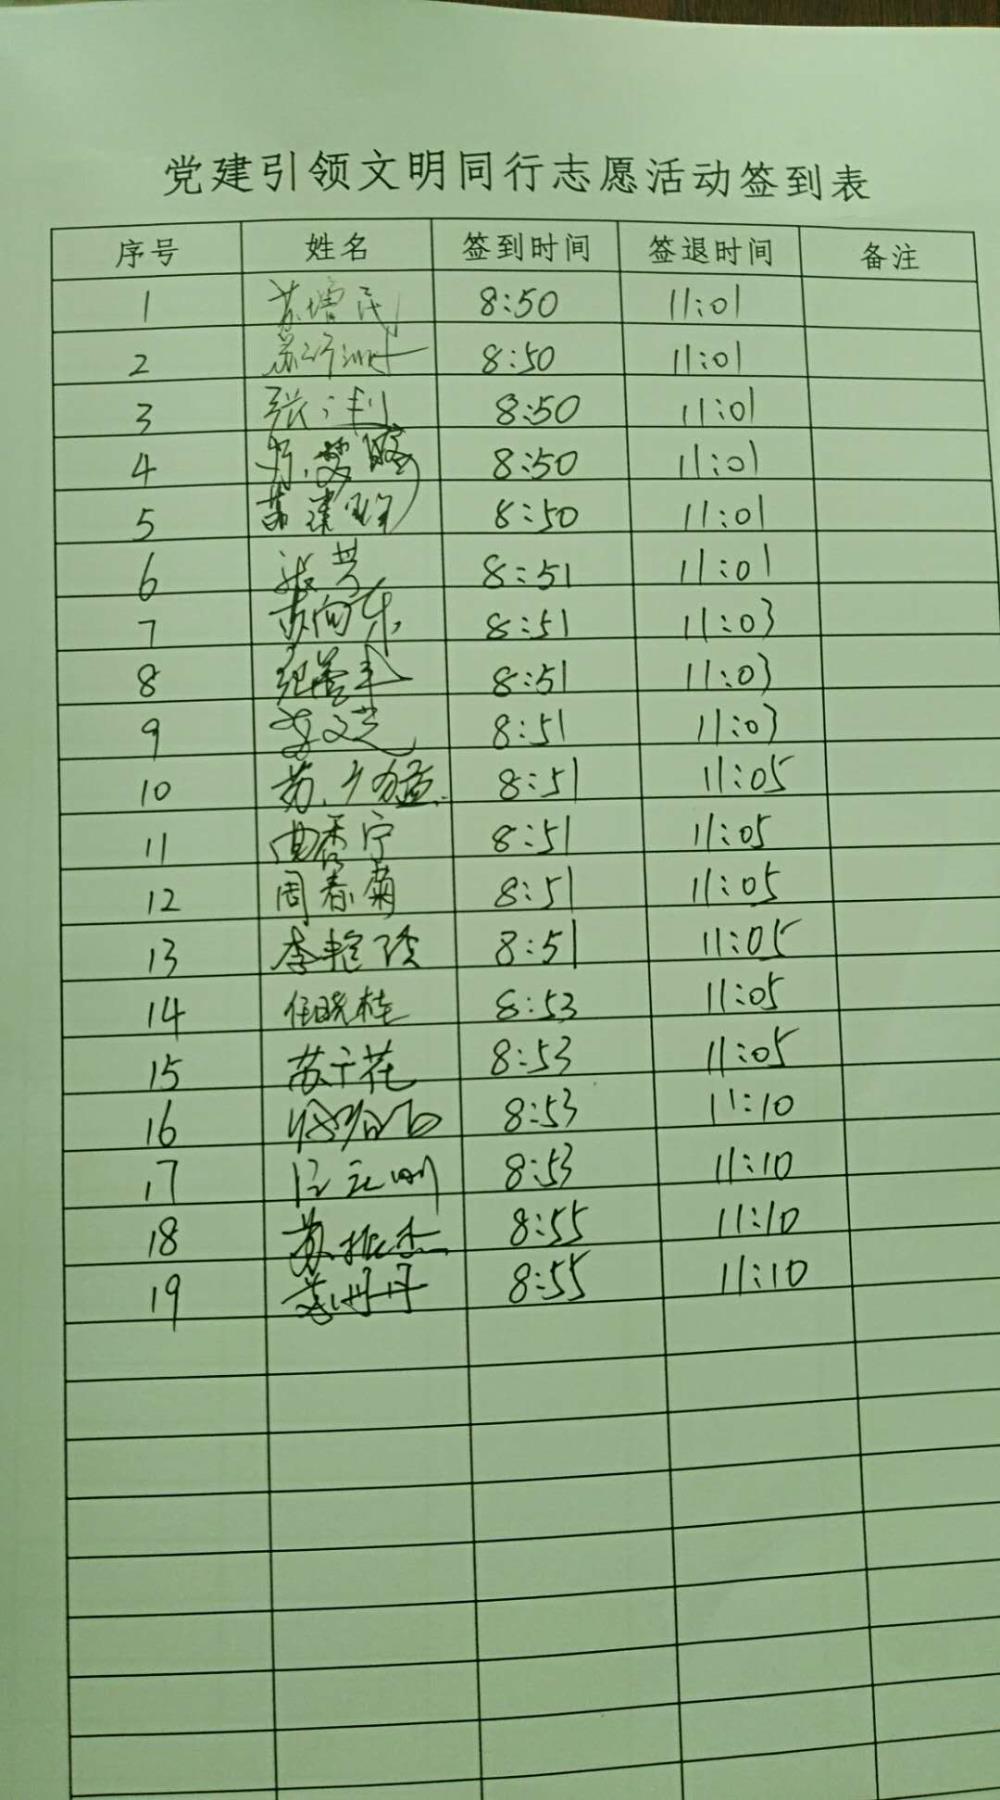 党建引领文明同行志愿活动签到表
序号 姓名 签到时间 签退时间 备注
1 苏增民 8:50 11:01
2 苏 8:50 11:01
3 张 利 8:50 11:01
4 8:50 11:01
5 苏建 8:50 11:01
6 8:51 11:01
7 苏向东 8:51 11:03
8 8:51 11:03
9 李文芝 8:51 11:03
10 苏 猛 8:51 11:05
11 曲香宁 8:51 11:05
12 周春菊 8:51 11:05
13 李艳 8:51 11:05
14 任晓桂 8:53 11:05
15 苏千花 8:53 11:05
16 8:53 11:10
17 8:53 11:10
18 苏振杰 8:55 11:10
19 丹丹 8:55 11:10